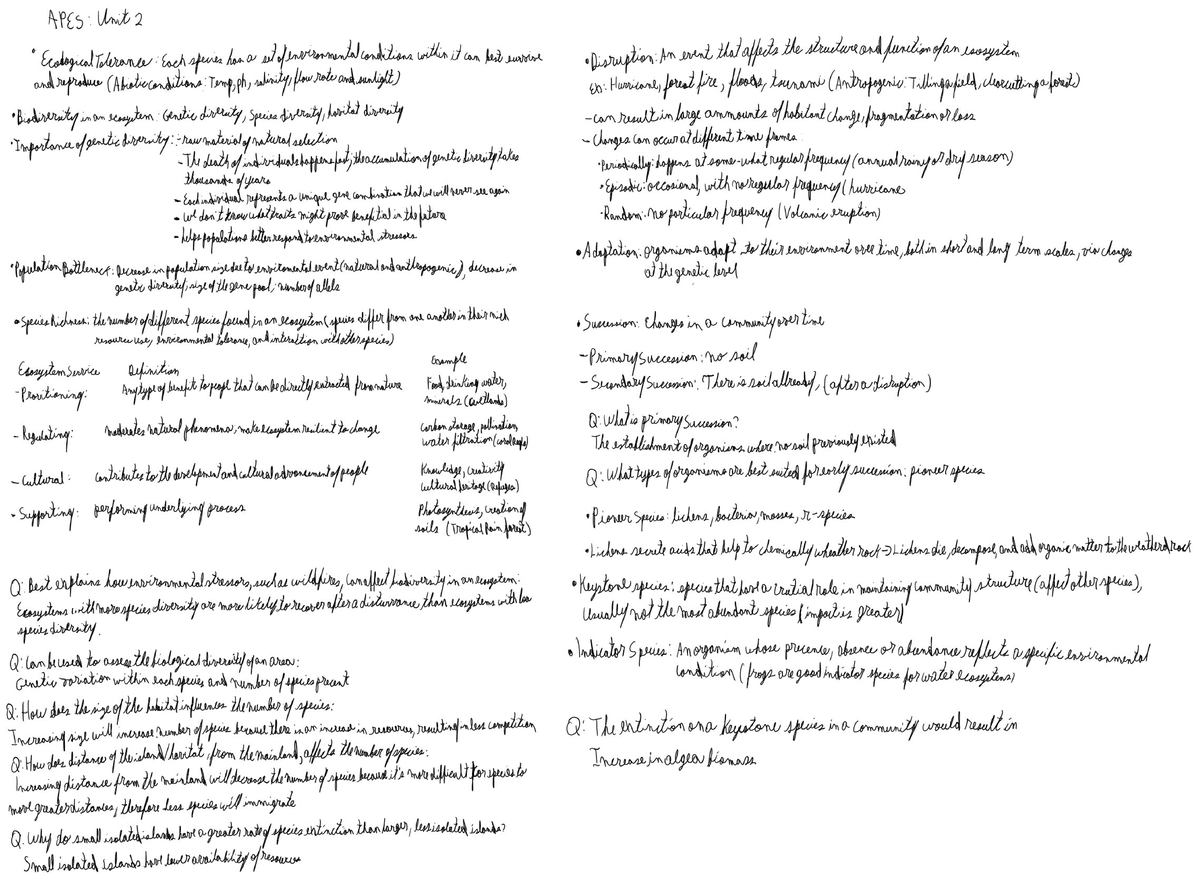 APES: Unit 2
• Ecological Tolerance: Each species has a set of environmental conditions within it can best survive
and reproduce (Abiotic conditions: Temp, ph, salinity, flow rate and sunlight)
• Biodiversity in an ecosystem: Genetic diversity, Species diversity, habitat diversity
• Importance of genetic diversity: - raw material of natural selection
- The death of individuals happens fast; the accumulation of genetic diversity takes
thousands of years
- Each individual represents a unique gene combination that we will never see again
- We don't know what traits might prove benefital in the future
- helps populations better respond to environmental stressors
• Population Bottleneck: Decrease in population size due to enviromental event (natural and anthropogenic), decrease in
genetic diversity; size of the gene pool; number of allels
• Species Richness: the number of different species found in an ecosystem (species differ from one another in their nich
resource use, environmental tolerance, and interaction with other species)
Ecosystem Service Definition Example
- Provitioning: Any type of benefit to people that can be directly extracted from nature Food, drinking water,
minerals (wetlands)
- Regulating: moderates natural phenomena, make ecosystem resilient to change carbon storage, pollination,
water filtration (coral reefs)
- Cultural: contributes to the development and cultural advancement of people Knowledge, creativity
cultural heritage (Refuges)
- Supporting: performing underlying process Photosynthesis, creation of
soils (Tropical Rain forest)
Q: Best explains how environmental stressors, such as wildfires, can affect biodiversity in an ecosystem:
Ecosystems with more species diversity are more likely to recover after a disturvance, than ecosystems with less
species diversity.
Q: Can be used to assess the biological diversity of an area:
Genetic variation within each species and number of species present
Q: How does the size of the habitat influences the number of species:
Increasing size will increase number of species because there is an increase in resources, resulting in less competition
Q: How does distance of the island/habitat, from the mainland, affects the number of species:
Increasing distance from the mainland will decrease the number of species because it's more difficult for species to
move greater distances, therefore less species will immigrate
Q: Why do small isolated islands have a greater rate of species extinction than larger, less isolated islands?
Small isolated islands have lower availability of resources
• Disruption: An event that affects the structure and function of an ecosystem
Ex: Hurricane, forest fire, floods, tsunami (Antropogenic: Tilling a field, clearcutting a forest)
- can result in large ammounts of habitant change, fragmentation or loss
- Changes can occur at different time frames:
• Periodically: happens at some-what regular frequency (annual rainy or dry season)
• Episodic: occasional, with no regular frequency (hurricane
- Random: no particular frequency (Volcanic eruption)
• Adaptation: organisms adapt to their environment over time, both in short and long term scales, via changes
at the genetic level
• Sucession: Changes in a community over time
- Primary Succession: no soil
- Secondary Sucession: There is soil already, (after a disruption)
Q: What is primary Succession?
The establishment of organisms where no soil previously existed
Q: What types of organisms are best suited for early succession: pioneer species
• Pioneer Species: lichens, bacteria, mosses, r-species
• Lichens secrete acids that help to chemically wheather rock → Lichens die, decompose, and add organic matter to the weathered rock
• Keystone species: species that have a crutial role in maintaining community structure (affect other species),
Usually not the most abundant species (impact is greater)
• Indicator Species: An organism whose precence, absence or abundance reflects a specific environmental
condition (frogs are good indicator species for water ecosystems)
Q: The extinction on a Keystone species in a community would result in
Increase in algea biomass